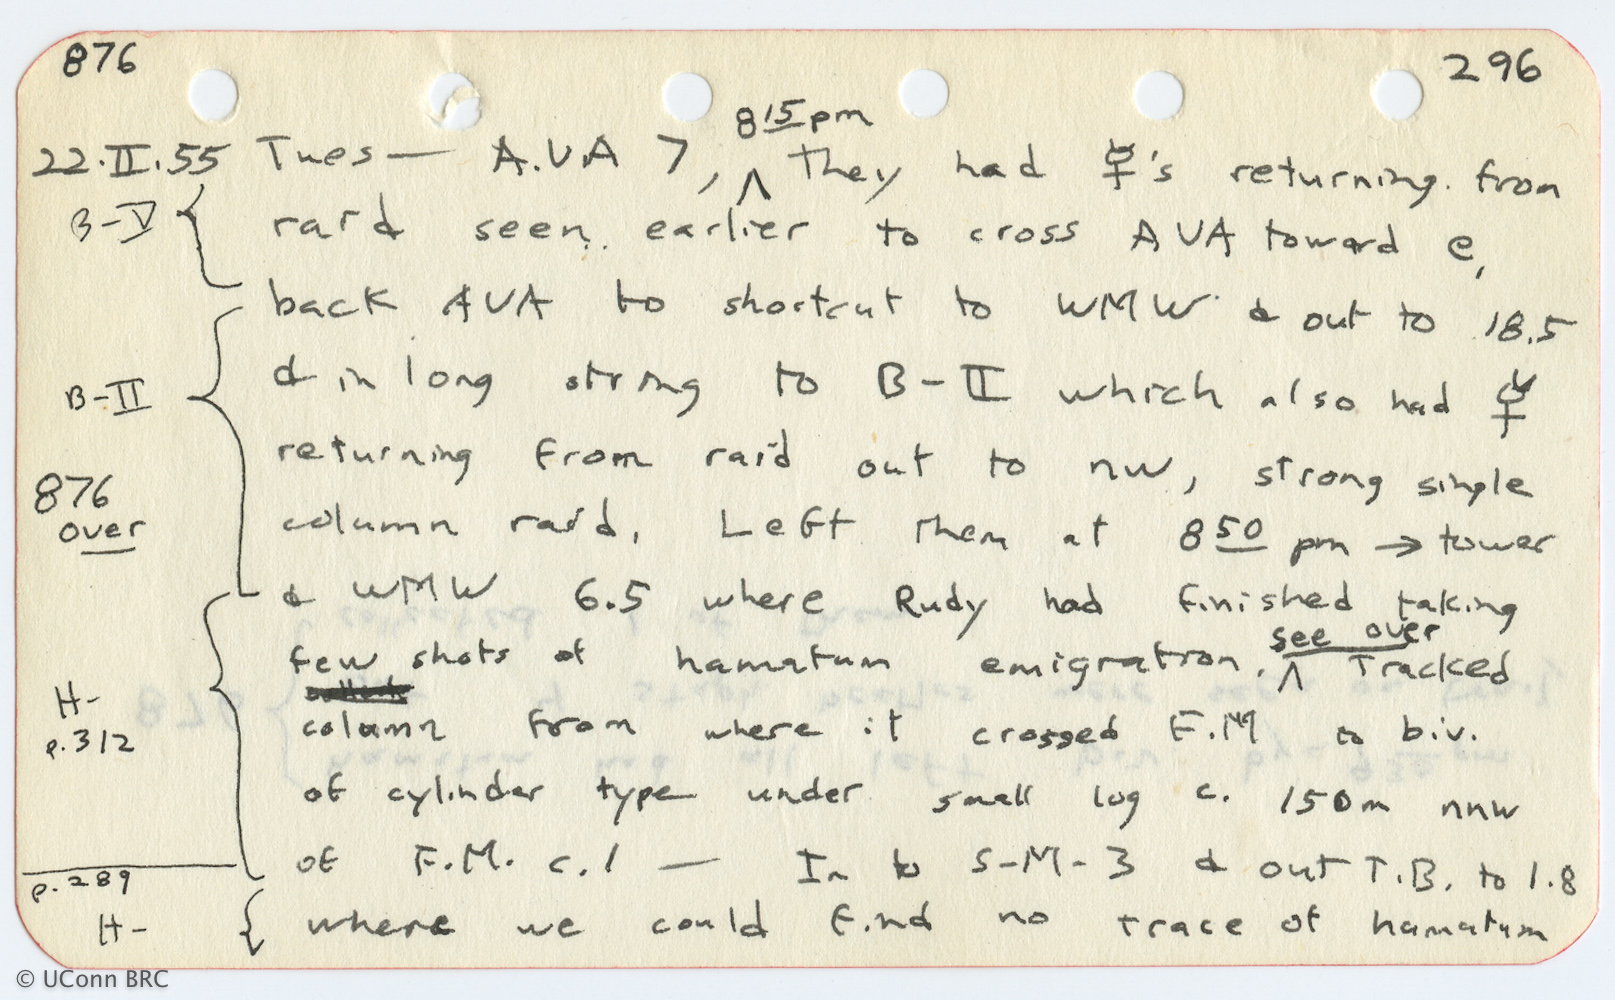 876
296
8 15 pm
22.II.55 Tues — A.V.A 7, ∧ They had ☿'s returning from
B-V
raid seen earlier to cross AVA toward e,
back AVA to shortcut to WMW & out to 18.5
B-II
& in long string to B-II which also had ☿
returning from raid out to nw, strong single
876
over
column raid. Left them at 8 50 pm → tower
& WMW 6.5 where Rudy had finished taking
see over
few shots of hamatum emigration. ∧ Tracked
H-
p.312
column from where it crossed F.M to biv.
of cylinder type under small log c. 150m nnw
of F.M. c.1 — In to S-M-3 & out T.B. to 1.8
p.289
H-
where we could find no trace of hamatum
© UConn BRC